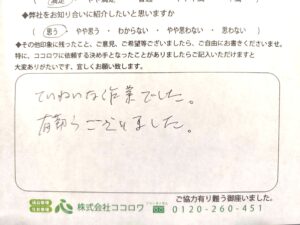 満足　やや満足　普通　やや不満　不満
◆弊社をお知り合いに紹介したいと思いますか
思う・やや思う・わからない・やや思わない・思わない
◆その他印象に残ったこと、ご意見、ご希望等ございましたら、ご自由にお書きくださいませ。
特に、ココロワに依頼する決め手となったことがありましたらご記入いただけますと
大変ありがたいです、宜しくお願い致します。
ていねいな作業でした。
有難うございました。
ご協力有り難う御座いました。
遺品整理
生前整理
株式会社ココロワ
フリーダイヤル
0120-260-451